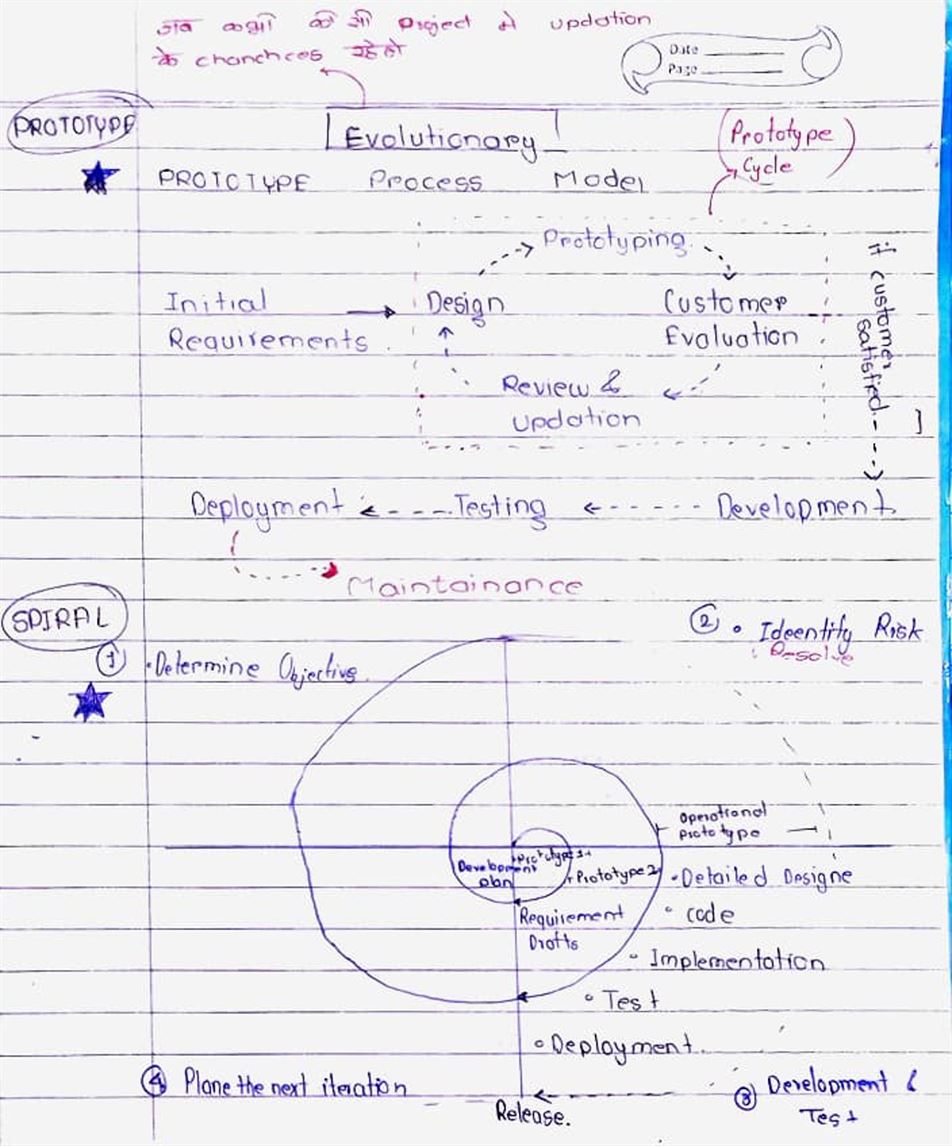 जब कभी की भी Project मे updation
के chanchces रहेहो
Date
Page
PROTOTYPE
Evolutionary
(Prototype
Cycle)
PROTOTYPE Process Model
Prototyping
Initial
Requirements
Design
Customer
Evaluation
if customer
satisfied
Review &
updation
Deployment
Testing
Development
Maintainance
SPIRAL
① •Determine Objective
② • Ideentify Risk
: Resolve
Operational
prototype
Prototype 1
Prototype 2
Development
plan
Requirement
Drafts
• Detailed Designe
• code
• Implementation
• Test
• Deployment.
④ Plane the next iteration
③ Development &
Test
Release.